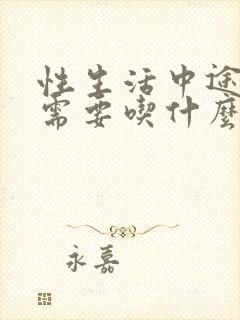 性生活中途
需要喫什麼
永嘉